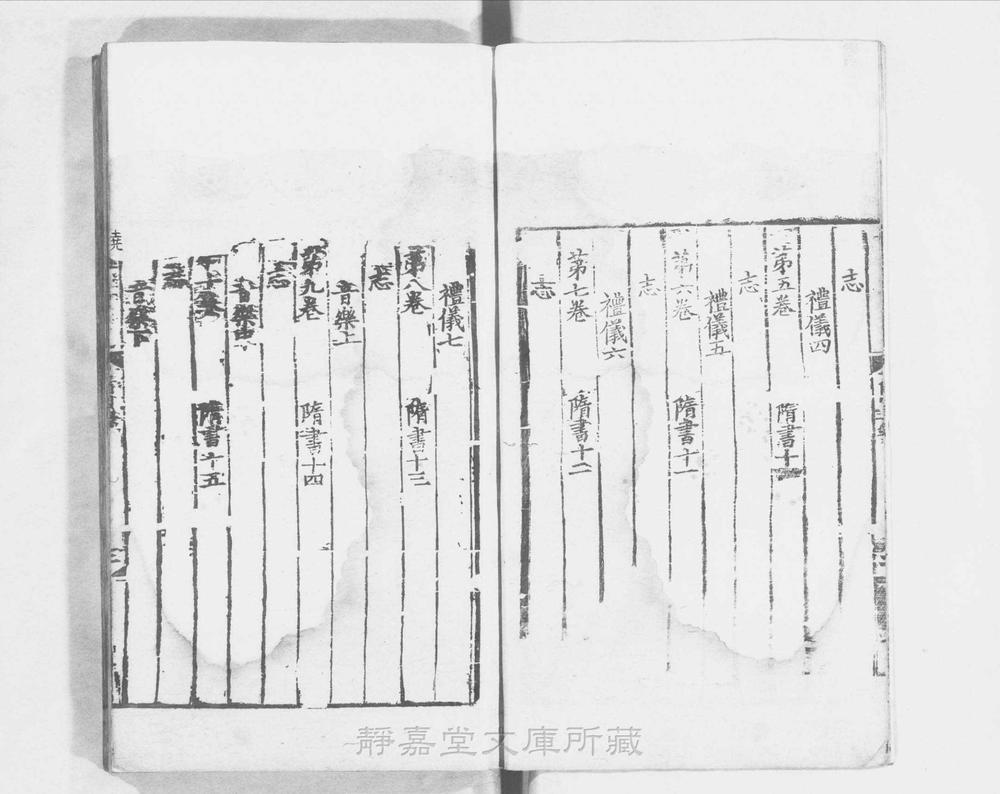 志
禮儀四
第五卷 隋書十
志
禮儀五
第六卷 隋書十一
志
禮儀六
第七卷 隋書十二
志
禮儀七
第八卷 隋書十三
志
音樂上
第九卷 隋書十四
志
音樂中
十卷 隋書十五
志
音樂下
靜嘉堂文庫所藏